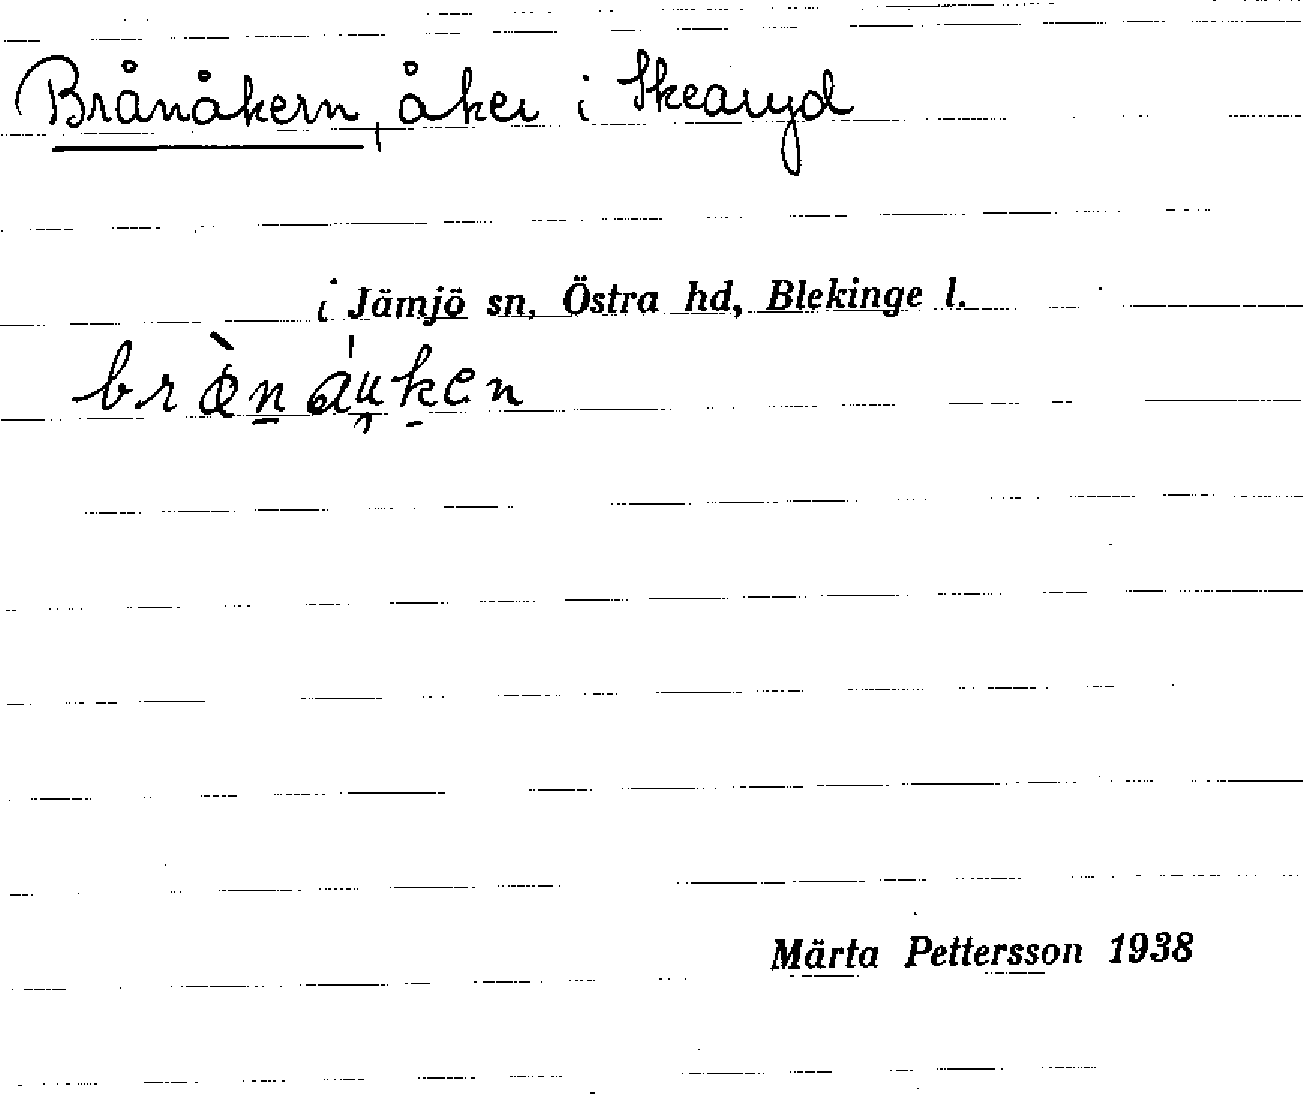 Brånåkern, åker i Skearyd
i Jämjö sn, Östra hd, Blekinge l.
Märta Pettersson 1938